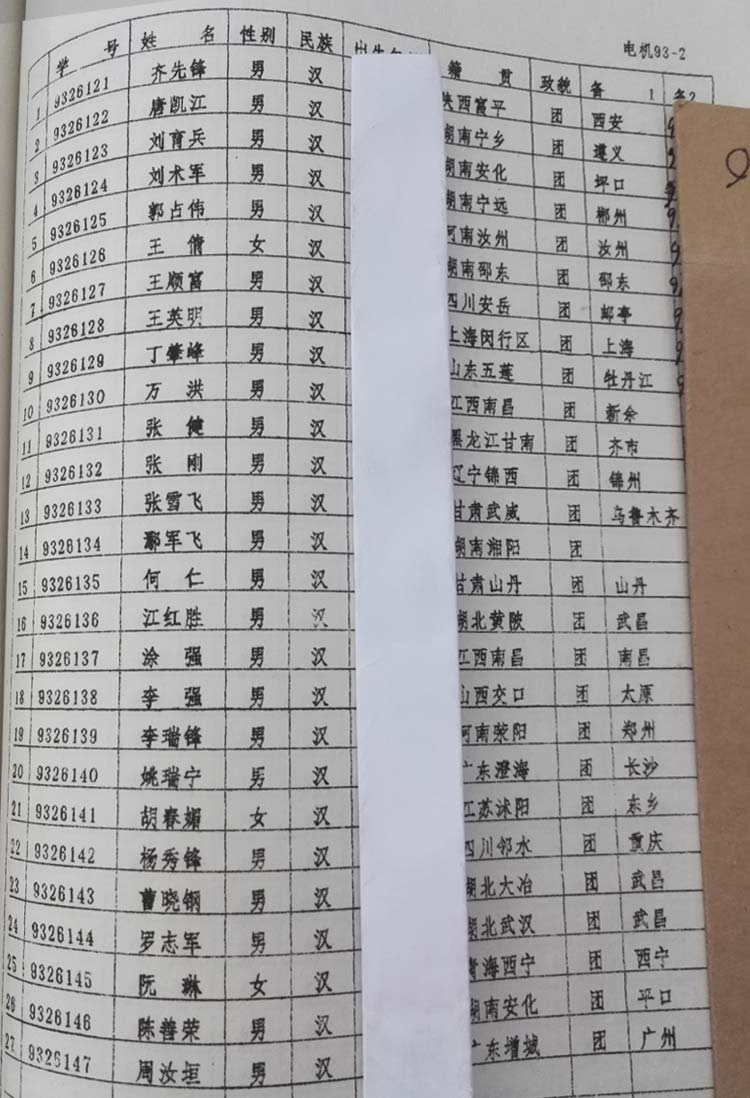 电机93-2
学 号 姓 名 性别 民族 籍 贯 政貌 备 1 备2
1 9326121 齐先锋 男 汉 陕西富平 团 西安
2 9326122 唐凯江 男 汉 湖南宁乡 团 遵义
3 9326123 刘育兵 男 汉 湖南安化 团 坪口
4 9326124 刘术军 男 汉 湖南宁远 团 郴州
5 9326125 郭占伟 男 汉 河南汝州 团 汝州
6 9326126 王 倩 女 汉 湖南邵东 团 邵东
7 9326127 王顺富 男 汉 四川安岳 团 邮亭
8 9326128 王英明 男 汉 上海闵行区 团 上海
9 9326129 丁肇峰 男 汉 山东五莲 团 牡丹江
10 9326130 万 洪 男 汉 江西南昌 团 新余
11 9326131 张 健 男 汉 黑龙江甘南 团 齐市
12 9326132 张 刚 男 汉 辽宁锦西 团 锦州
13 9326133 张雪飞 男 汉 甘肃武威 团 乌鲁木齐
14 9326134 鄢军飞 男 汉 湖南湘阳 团
15 9326135 何 仁 男 汉 甘肃山丹 团 山丹
16 9326136 江红胜 男 汉 湖北黄陂 团 武昌
17 9326137 涂 强 男 汉 江西南昌 团 南昌
18 9326138 李 强 男 汉 山西交口 团 太原
19 9326139 李瑞锋 男 汉 河南荥阳 团 郑州
20 9326140 姚瑞宁 男 汉 广东澄海 团 长沙
21 9326141 胡春媚 女 汉 江苏沭阳 团 东乡
22 9326142 杨秀锋 男 汉 四川邻水 团 重庆
23 9326143 曹晓钢 男 汉 湖北大冶 团 武昌
24 9326144 罗志军 男 汉 湖北武汉 团 武昌
25 9326145 阮 琳 女 汉 青海西宁 团 西宁
26 9326146 陈善荣 男 汉 湖南安化 团 平口
27 9326147 周汝垣 男 汉 广东增城 团 广州